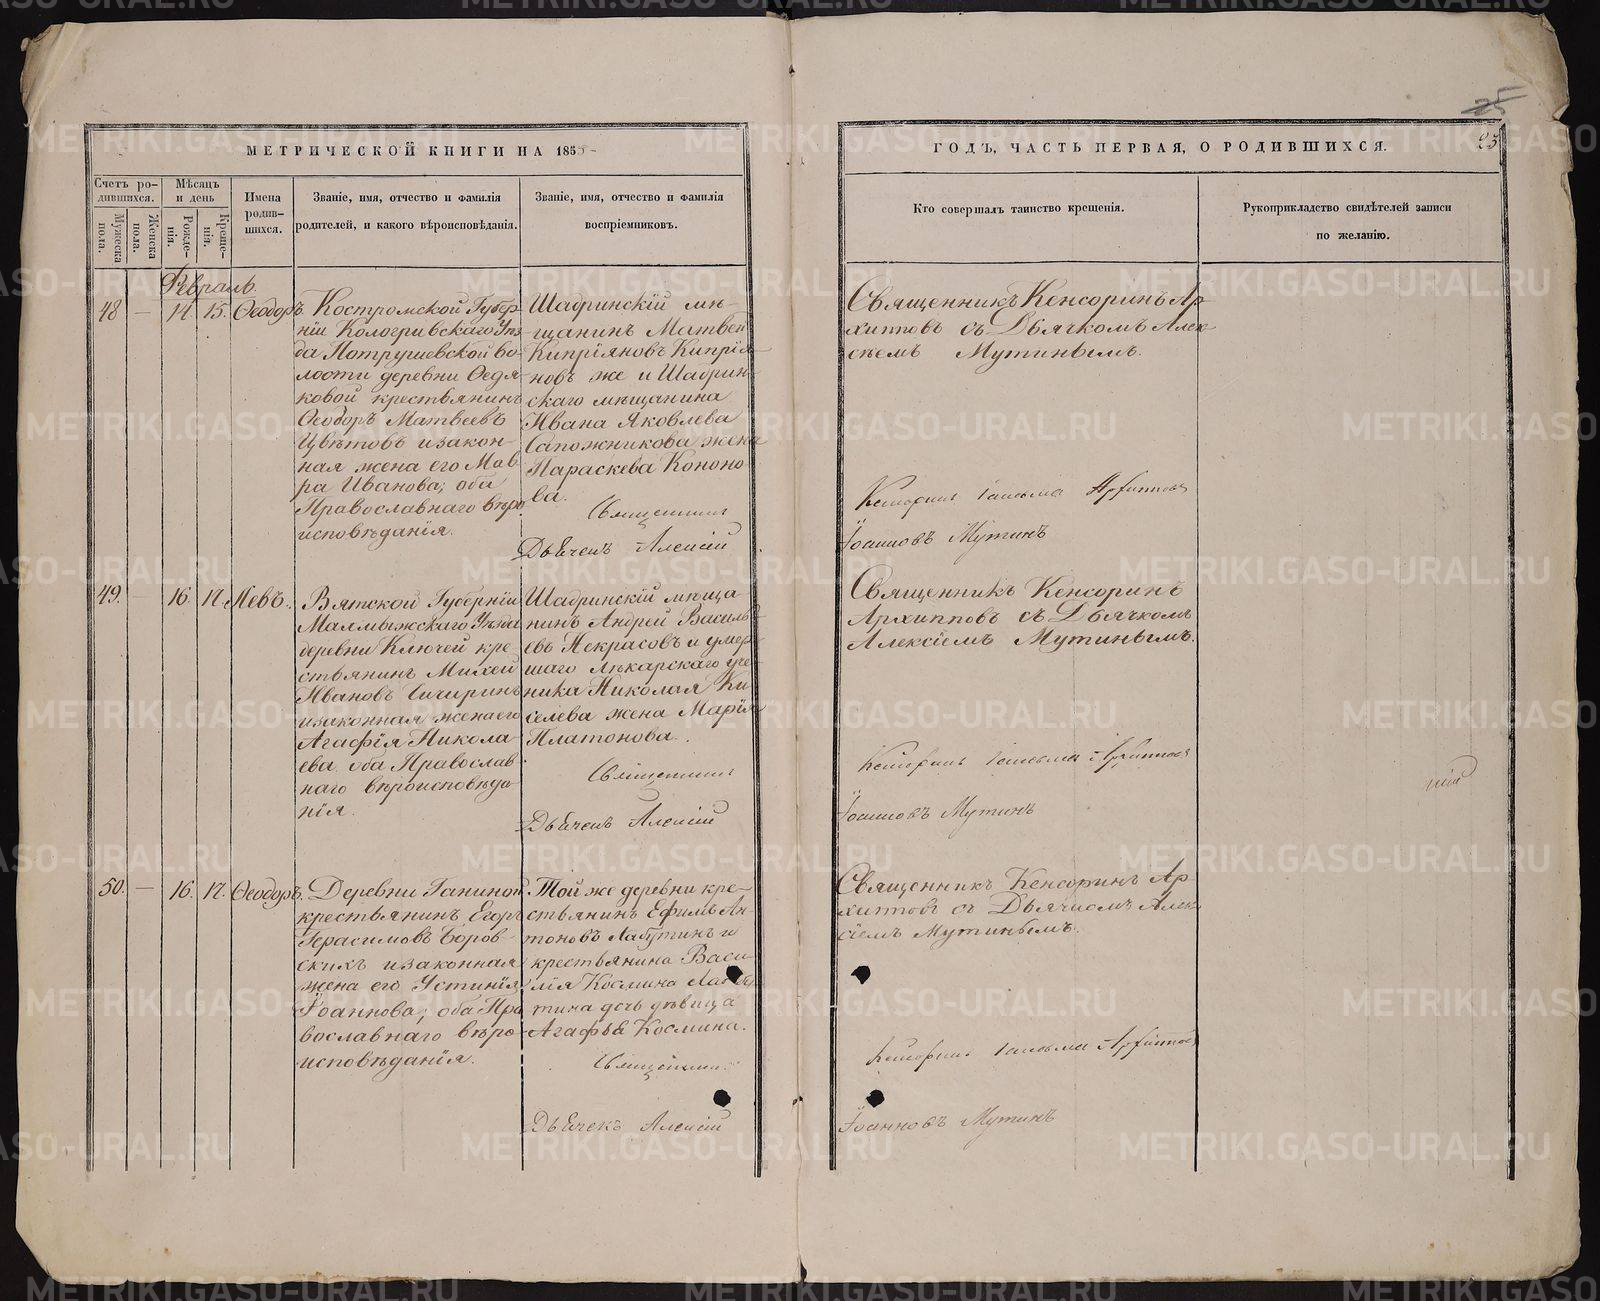 25
23
МЕТРИЧЕСКОЙ КНИГИ НА 1855
ГОДЪ, ЧАСТЬ ПЕРВАЯ, О РОДИВШИХСЯ.
Счетъ ро-
дившихся.
Мужеска
пола.
Женска
пола.
Мѣсяцъ
и день
Рожде-
нія.
Креще-
нія.
Имена
родив-
шихся.
Званіе, имя, отчество и фамилія
родителей, и какого вѣроисповѣданія.
Званіе, имя, отчество и фамилія
воспріемниковъ.
Кто совершалъ таинство крещенія.
Рукоприкладство свидѣтелей записи
по желанію.
Февраль.
48 — 14 15. Ѳеодоръ
Костромской Губер-
ніи Кологривскаго Уѣз
да Потрушевской во-
лости деревни Ѳедя-
ковой крестьянинъ
Ѳеодоръ Матвеевъ
Цвѣтовъ и закон-
ная жена его Мав
ра Иванова; оба
Православнаго вѣро
исповѣданія.
Шадринскій мѣ-
щанинъ Матвей
Кипріяновъ Кипрія-
новъ же и Шадрин-
скаго мѣщанина
Ивана Яковлева
Сапожникова жена
Параскева Кононо
ва.
Священникъ
Дьячекъ Алексій
Священникъ Кенсоринъ Ар-
хипповъ съ Дьячкомъ Алек-
сѣемъ Мутинымъ.
Кенсоринъ Архипповъ
Іоанновъ Мутинъ
49. — 16. 17 Левъ.
Вятской Губерніи
Малмыжскаго Уѣзда
деревни Ключей кре-
стьянинъ Михей
Ивановъ Чичиринъ
и законная жена его
Агафія Никола-
ева. оба Православ
наго вѣроисповѣда-
нія.
Шадринскій мѣща
нинъ Андрей Василь-
евъ Некрасовъ и умер-
шаго лѣкарскаго уче
ника Николая Ки
селева жена Марія
Платонова.
Священникъ
Дьячекъ Алексій
Священникъ Кенсоринъ
Архипповъ съ Дьячкомъ
Алексіемъ Мутинымъ.
Кенсоринъ Архипповъ
Іоанновъ Мутинъ
50. — 16. 17. Ѳеодоръ.
Деревни Ганиной
крестьянинъ Егоръ
Герасимовъ Боров-
скихъ и законная
жена его Устинія
Іоаннова; оба Пра
вославнаго вѣро-
исповѣданія.
Той же деревни кре-
стьянинъ Ефимъ Ан-
тоновъ Лабутинъ и
крестьянина Васи-
лія Космина Лабу
тина дочь дѣвица
Агафья Космина.
Священникъ
Дьячекъ Алексій
Священникъ Кенсоринъ Ар-
хипповъ съ Дьячкомъ Алек-
сіемъ Мутинымъ.
Кенсоринъ Архипповъ
Іоанновъ Мутинъ
METRIKI.GASO-URAL.RU